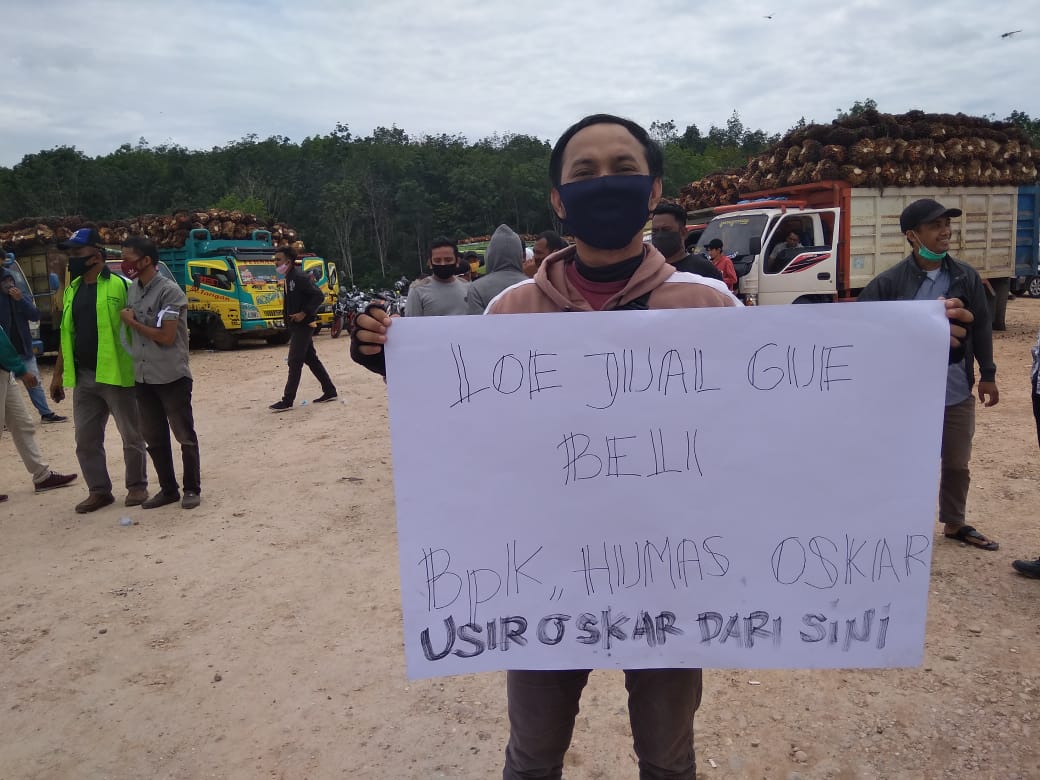 LOE JUAL GUE
BELI
BpK,, HUMAS OSKAR
USIR OSKAR DARI SINI